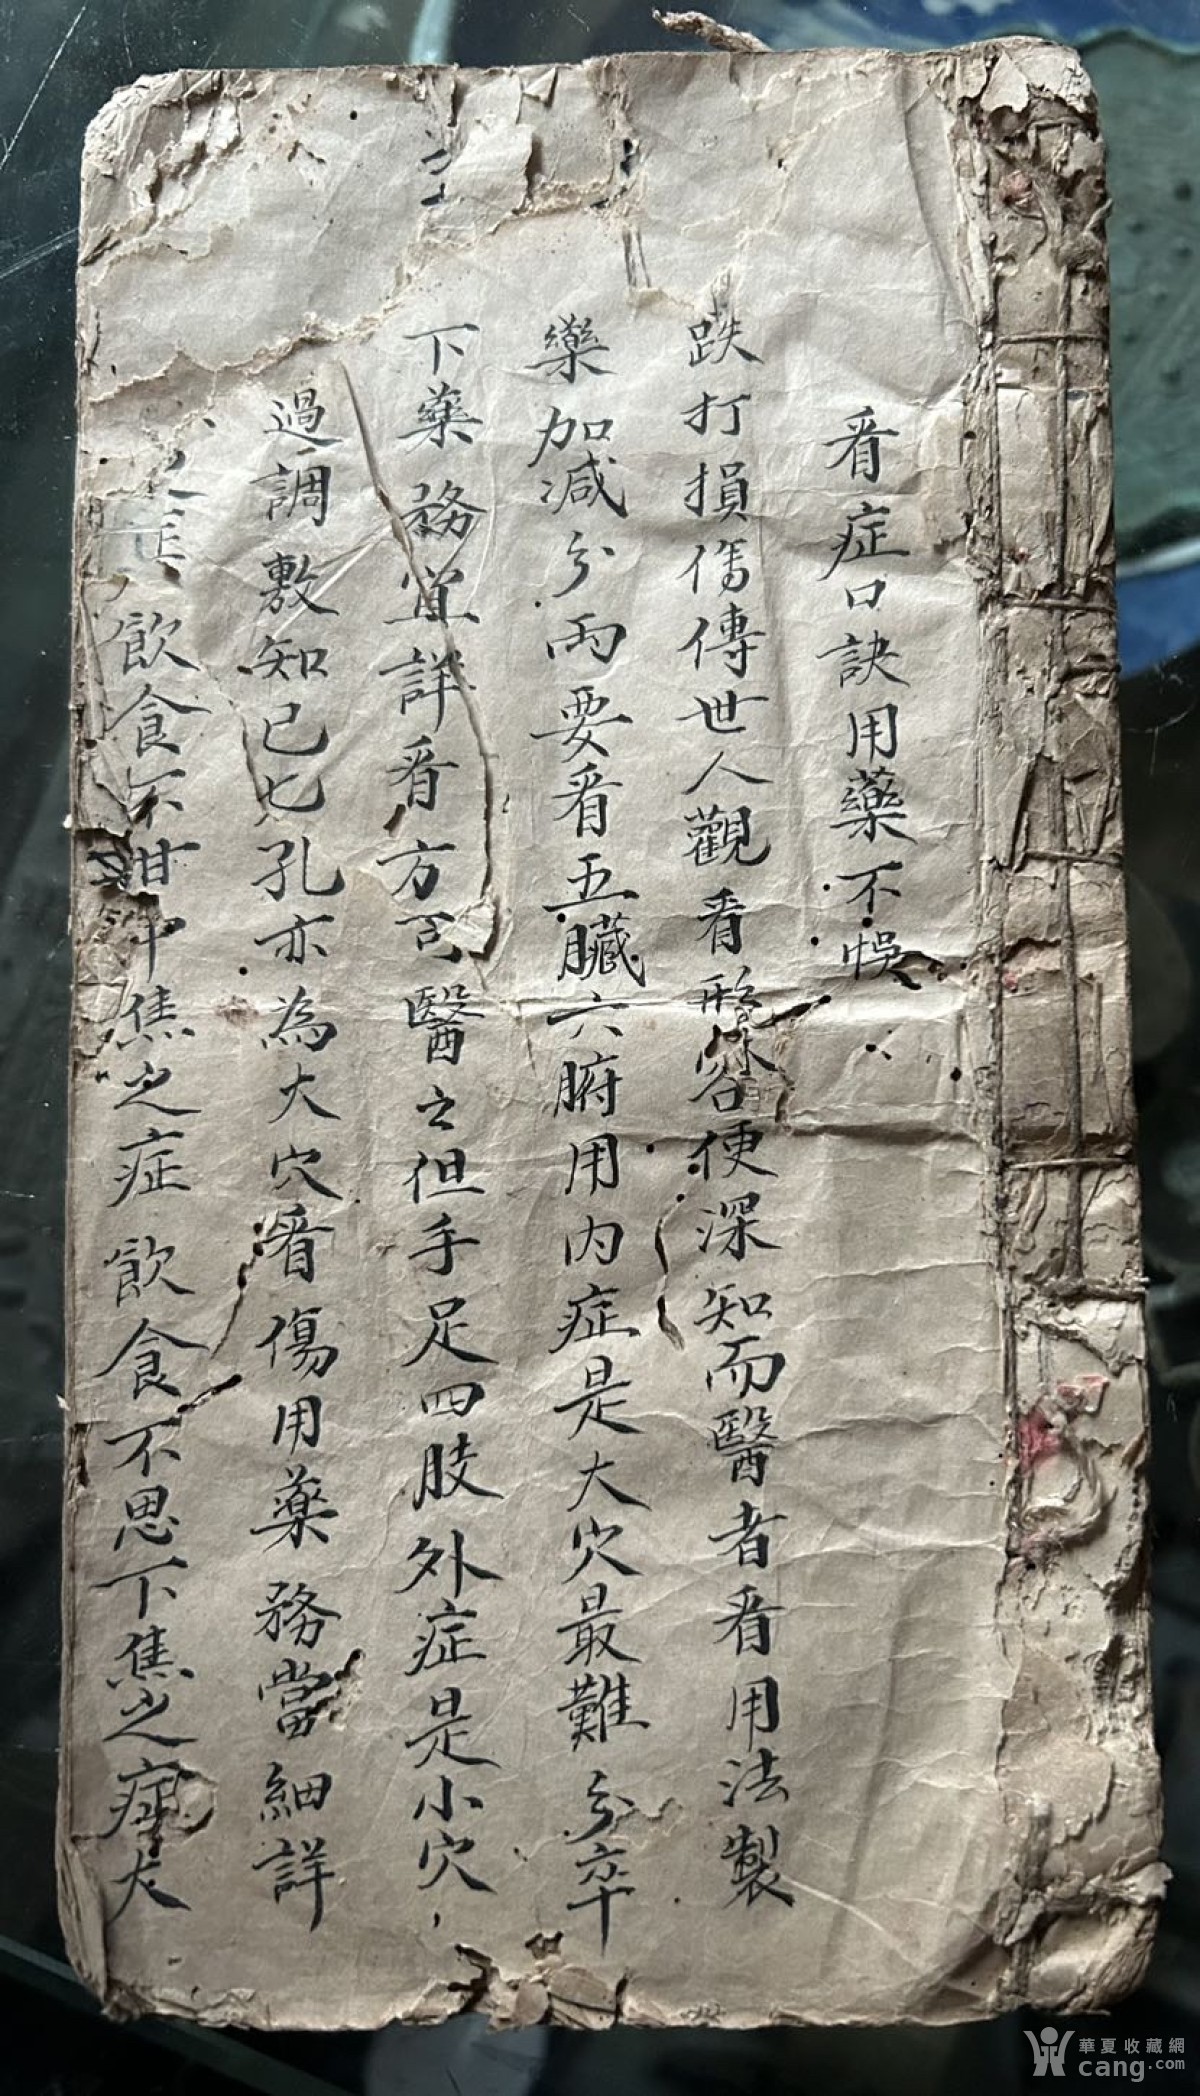 看症口訣用藥不悞
跌打損傷傳世人觀看形容便深知而醫者看用法製
藥加減分兩要看五臟六腑用內症是大穴最難分卒
下藥務宜詳看方可醫之但手足四肢外症是小穴
過調敷知已七孔亦為大穴看傷用藥務當細詳
飲食不甜中焦之症飲食不思下焦之症大
華夏收藏網
cang.com